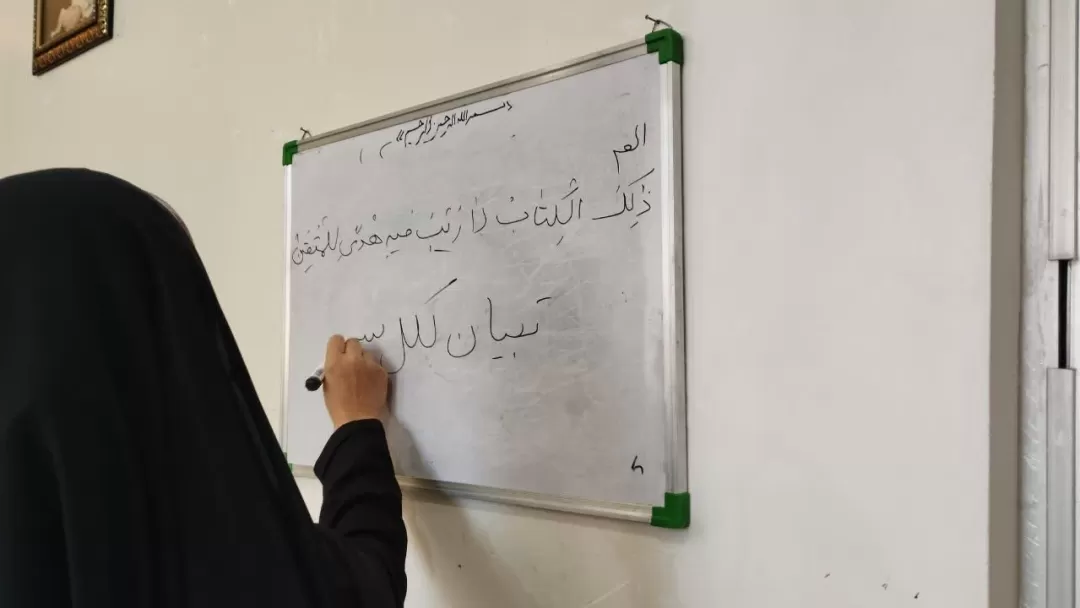 «بسم الله الرحمن الرحیم»
الم
ذٰلِکَ الْکِتَابُ لَا رَیْبَ فیهِ هُدًی لِلْمُتَّقِینَ
تبیان لکل